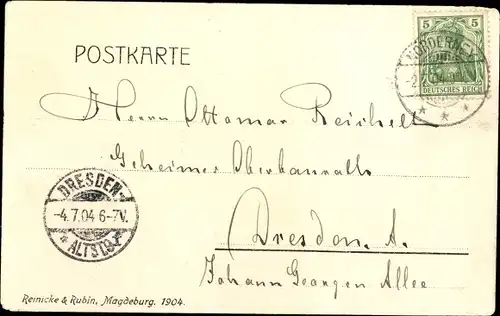 POSTKARTE
5 5
DEUTSCHES REICH
NORDERNEY
Herrn Ottomar Reichelt
Geheimer Oberbaurath
DRESDEN-
-4.7.04 6-7V.
* ALTST. *
Dresden. A.
Johann Georgen Allee
Reinicke & Rubin, Magdeburg. 1904.